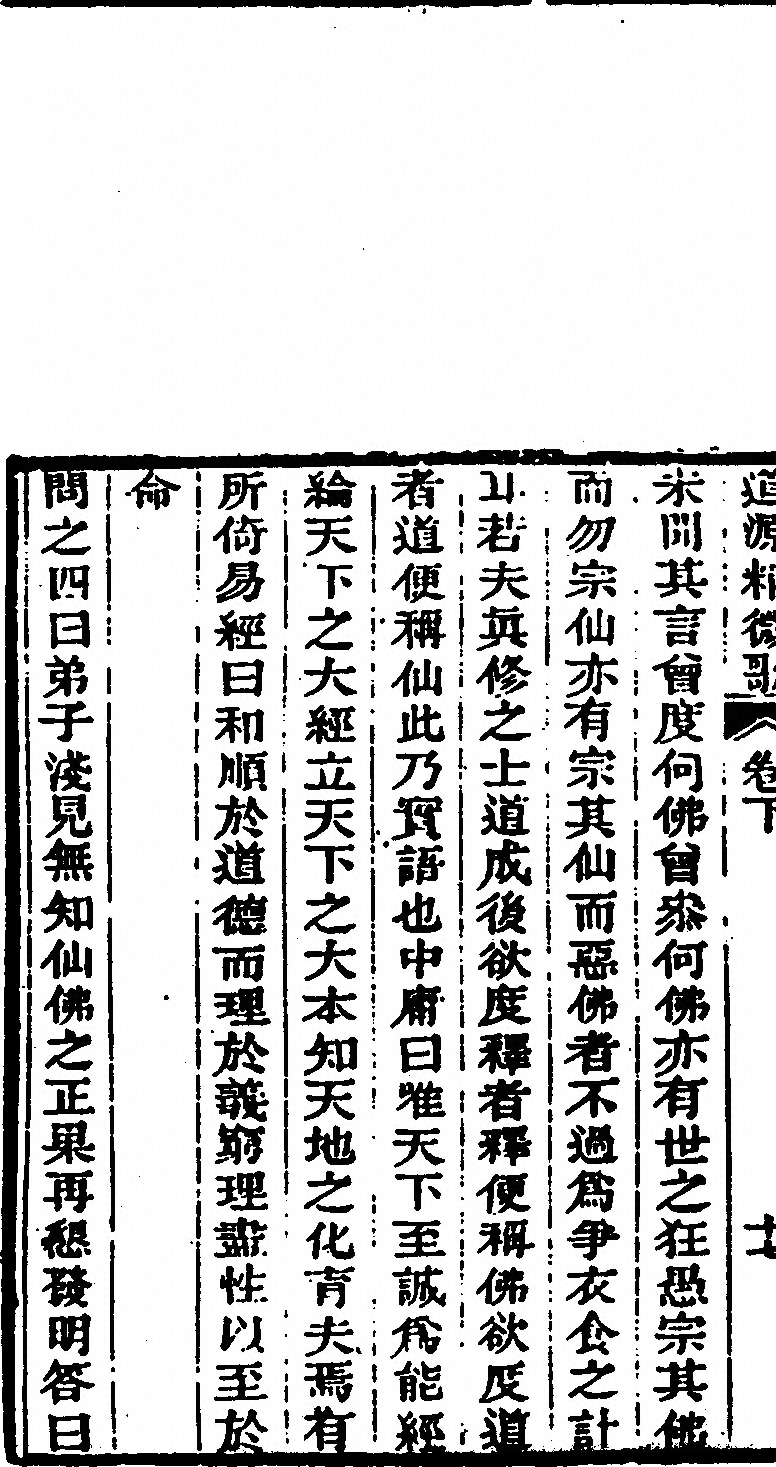 道源精微歌 卷下 十七
未聞其言曾度何佛曾參何佛亦有世之狂愚宗其佛
而勿宗仙亦有宗其仙而惡佛者不過為爭衣食之計
耳若夫眞修之士道成後欲度釋者釋便稱佛欲度道
者道便稱仙此乃實語也中庸曰唯天下至誠爲能經
綸天下之大經立天下之大本知天地之化育夫焉有
所倚易經曰和順於道德而理於義窮理盡性以至於
命
問之四曰弟子淺見無知仙佛之正果再懇發明答曰